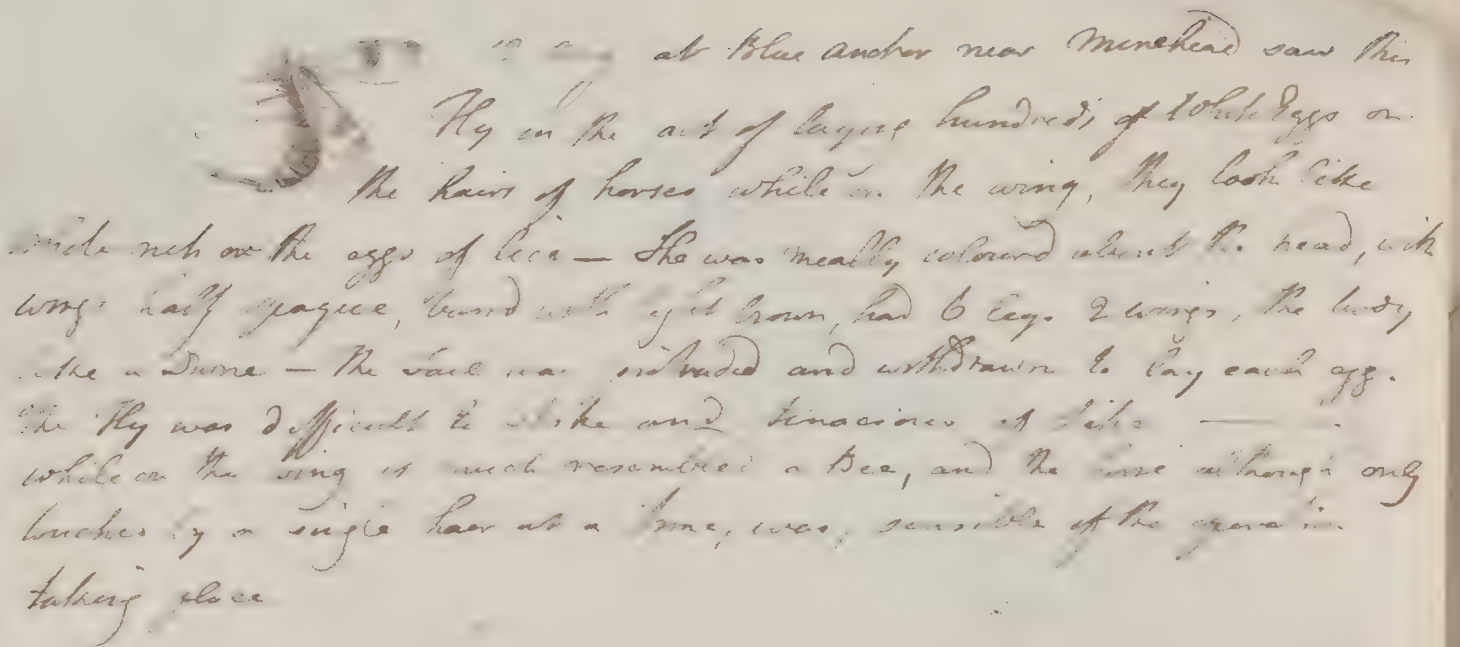 at Blue anchor near Minehead saw this
Fly in the act of laying hundreds of White Eggs on
the hairs of horses while on the wing, they look like
nits or the eggs of lice — She was mealy colourd about the head, with
wings half opaque, with light brown, had 6 legs 2 wings, the body
like a Drone — the tail was protruded and withdrawn to lay each egg.
The Fly was difficult to strike and tenacious of life —
while on the wing it much resembled a Bee, and the horse although only
touched by a single hair at a time, was, sensible of the operation
taking place